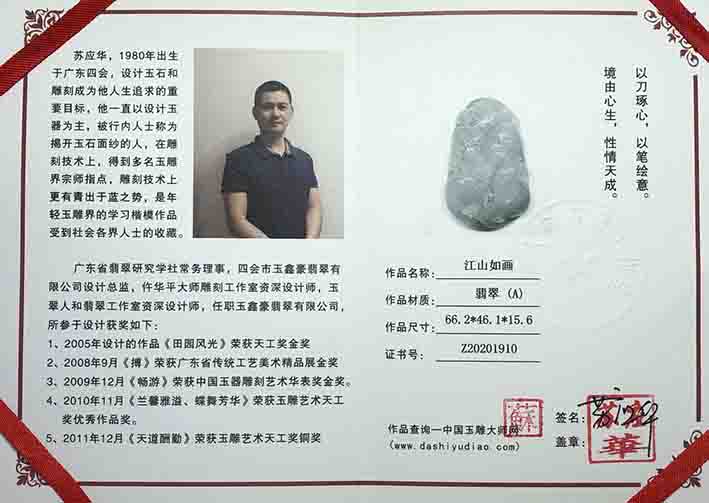 苏应华，1980年出生
于广东四会，设计玉石和
雕刻成为他人生追求的重
要目标，他一直以设计玉
器为主，被行内人士称为
揭开玉石面纱的人，在雕
刻技术上，得到多名玉雕
界宗师指点，雕刻技术上
更有青出于蓝之势，是年
轻玉雕界的学习楷模作品
受到社会各界人士的收藏。
广东省翡翠研究学社常务理事，四会市玉鑫豪翡翠有
限公司设计总监，仵华平大师雕刻工作室资深设计师，玉
翠人和翡翠工作室资深设计师，任职玉鑫豪翡翠有限公司，
所参于设计获奖如下：
1、2005年设计的作品《田园风光》荣获天工奖金奖
2、2008年9月《搏》荣获广东省传统工艺美术精品展金奖
3、2009年12月《畅游》荣获中国玉器雕刻艺术华表奖金奖。
4、2010年11月《兰馨雅溢、蝶舞芳华》荣获玉雕艺术天工
奖优秀作品奖。
5、2011年12月《天道酬勤》荣获玉雕艺术天工奖铜奖
以刀琢心，以笔绘意。
境由心生，性情天成。
作品名称：江山如画
作品材质：翡翠（A）
作品尺寸：66.2*46.1*15.6
证书号：Z20201910
作品查询—中国玉雕大师网
(www.dashiyudiao.com)
蘇
签名：苏应华
盖章：